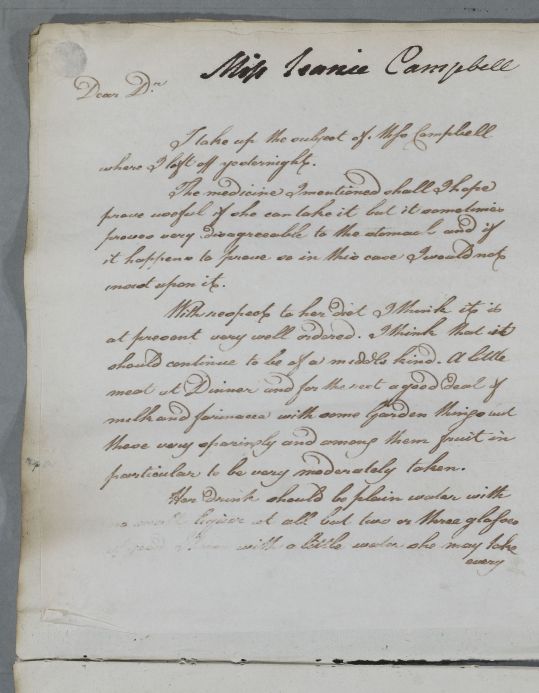 Miss Jeanie Campbell
Dear Dr.
I take up the subject of Miss Campbell
where I left off yesternight.
The medicine I mentioned shall I hope
prove useful if she can take it but it sometimes
proves very disagreeable to the stomach and if
it happens to prove so in this case I would not
insist upon it.
With respect to her diet I think it is
at present very well ordered. I think that it
should continue to be of a middle kind. A little
meat at Dinner and for the rest a good deal of
milk and farinacea with some Garden things but
these very sparingly and among them fruit in
particular to be very moderately taken.
Her drink should be plain water with
no malt liquor at all but two or three glasses
of good with a little water she may take
every